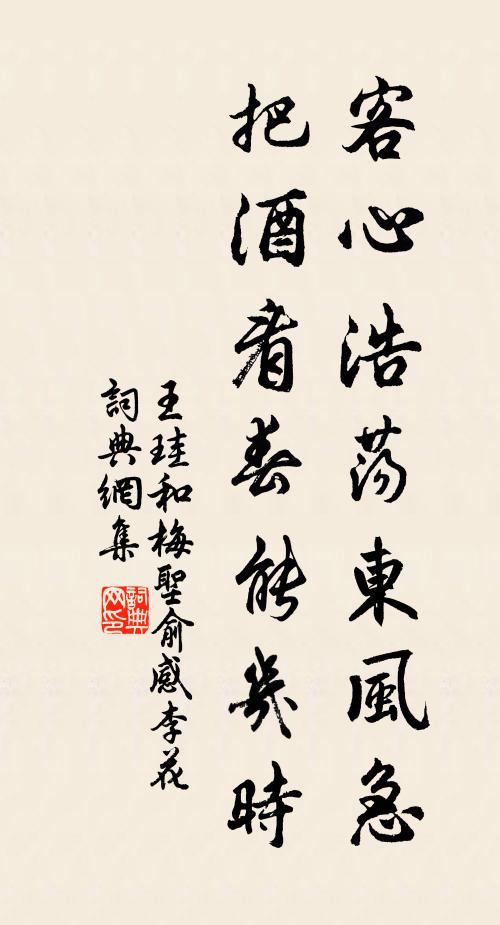 客心浩蕩東風急
把酒看春能幾時
王珪和梅聖俞感李花
詞典網集
詞典网印